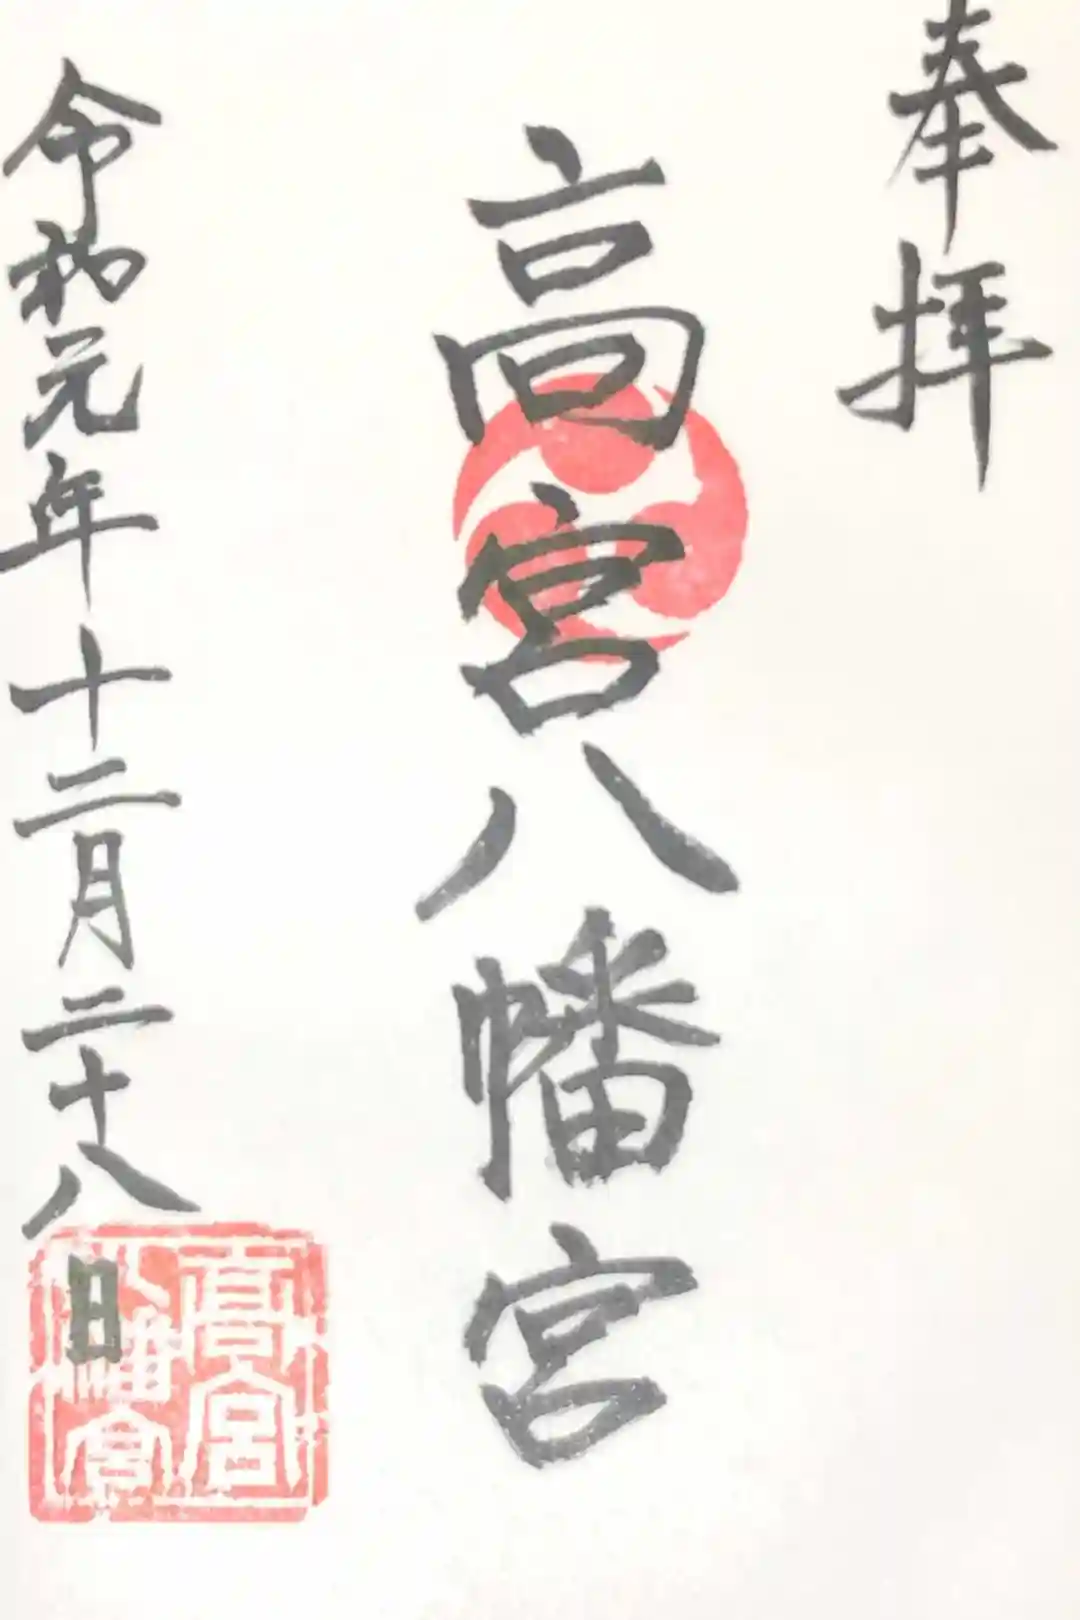 奉拝
高宮八幡宮
令和元年十二月二十八日
高宮
八幡宮